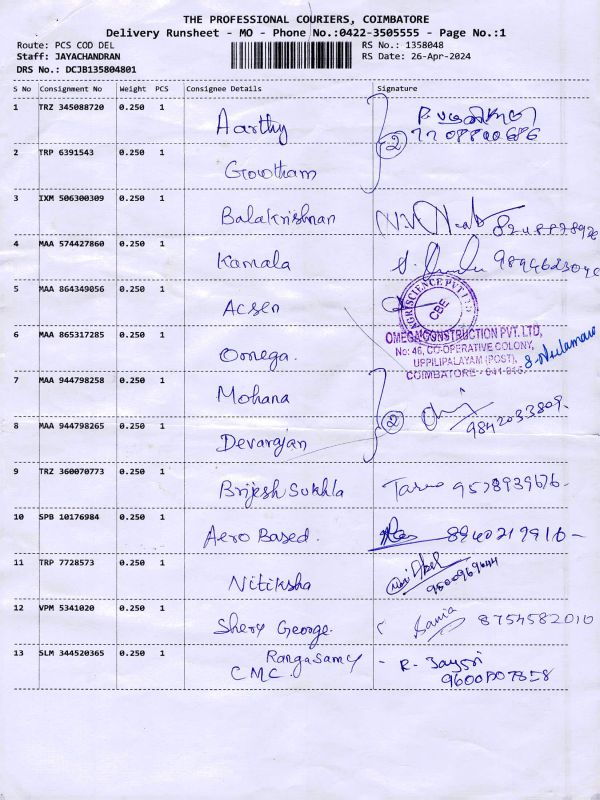 THE PROFESSIONAL COURIERS, COIMBATORE
Delivery Runsheet - MO - Phone No.:0422-3505555 - Page No.:1
Route: PCS COD DEL RS No.: 1358048
Staff: JAYACHANDRAN RS Date: 26-Apr-2024
DRS No.: DCJB135804801
S No Consignment No Weight PCS Consignee Details Signature
1 TRZ 345088720 0.250 1 Aarthy
2 7708800686
2 TRP 6391543 0.250 1 Gowtham
3 IXM 506300309 0.250 1 Balakrishnan
4 MAA 574427860 0.250 1 Kamala
5 MAA 864349056 0.250 1 Acsen
AGRISCIENCE PVT LTD
CBE
6 MAA 865317285 0.250 1 Omega.
OMEGA CONSTRUCTION PVT. LTD,
No: 46, CO-OPERATIVE COLONY,
UPPILIPALAYAM (POST),
COIMBATORE - 641 015.
7 MAA 944798258 0.250 1 Mohana
2 9842033809.
8 MAA 944798265 0.250 1 Devarajan
9 TRZ 360070773 0.250 1 Brijesh Sukhla 9578939676-
10 SPB 10176984 0.250 1 Aero Based. 8940219916-
11 TRP 7728573 0.250 1 Nitiksha 9500969644
12 VPM 5341020 0.250 1 Shery George. Sania 8754582010
13 SLM 344520365 0.250 1 Rangasamy
CMC. - R. Jaysri